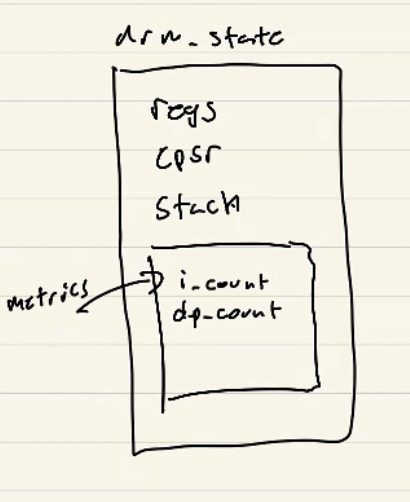 arm_state
regs
cpsr
stack
metrics
i_count
dp_count